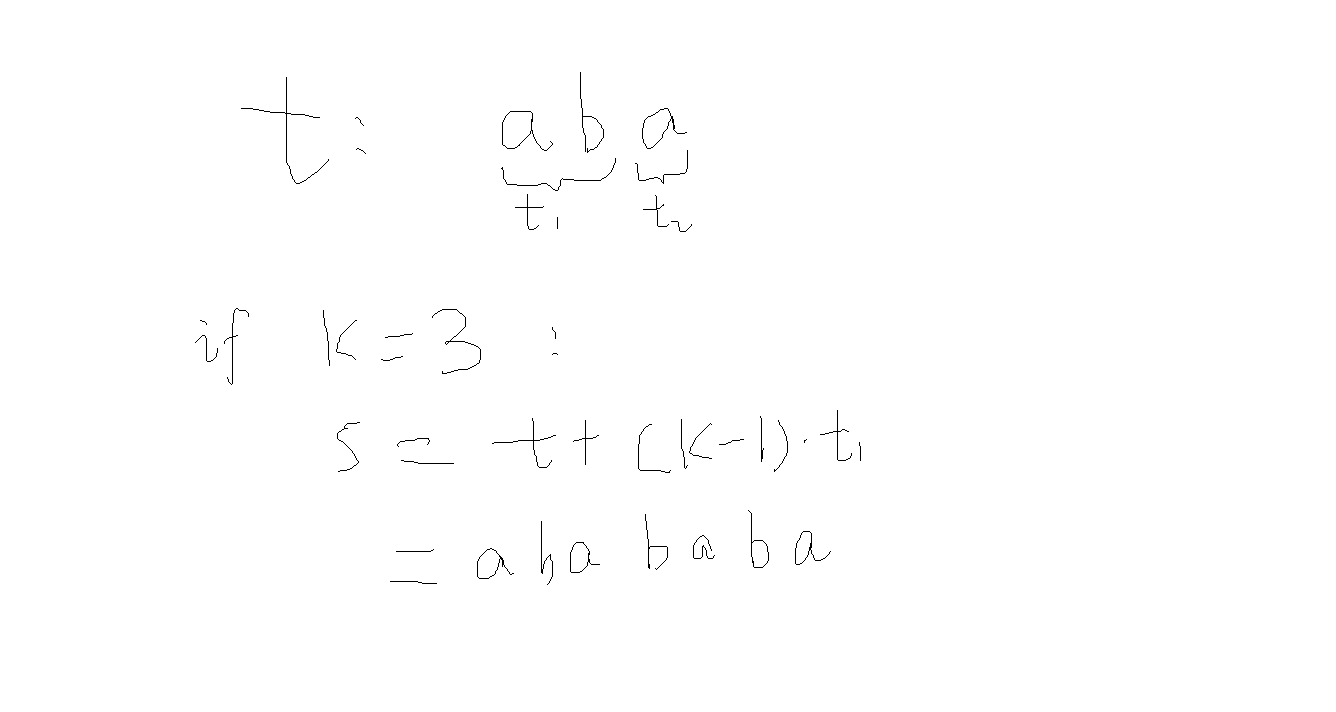 t: a b a
t₁ t₂
if k = 3 :
S = t + (k-1) · t₁
= a b a b a b a